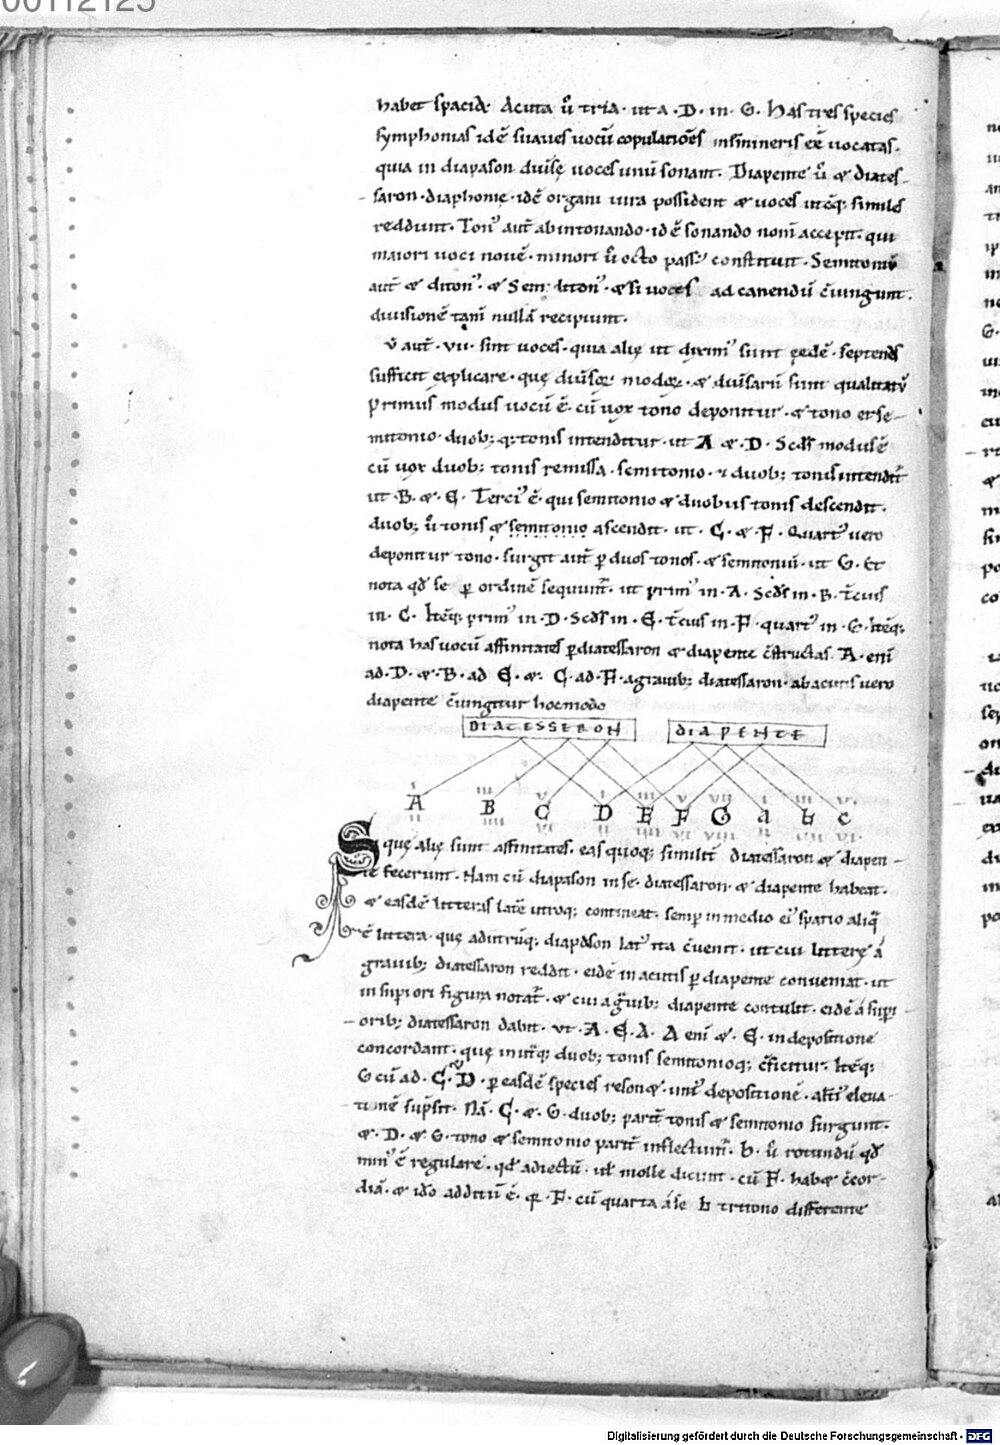 00112125
habet spacia. Acuta ů tria. ut a. D. in. G. Has tres species
symphonias idē suaues uocū copulatiōes memineris eē uocatas.
quia in diapason diuisę uoces unū sonant. Diapente ů & diates-
saron. diaphonię. idē organi iura possident & uoces utcq; similes
reddunt. Ton' aut̄ ab intonando. idē sonando nom̄ accepit. qui
maiori uoci nouē. minori ů octo pass' constituit. Semitoniū
aut̄ & diton'. & Sem diton'. & si uoces ad canendū c̄iungunt.
diuisionē tam̄ nullā recipiunt.
V aut̄. vii. sint uoces. quia alię ut dixim' sunt eędē. septenas
sufficit explicare. quę diuisoꝝ modoꝝ. & diuisarū sunt qualitatū
Primus modus uocū ē. cū uox tono deponitur. & tono et se-
mitonio duob; q; tonis intenditur. ut A & D. Scd̄s modus ē
cū uox duob; tonis remissa. semitonio. & duob; tonis intendit̄
ut. B. & E. Terci' ē. qui semitonio & duobus tonis descendit.
duob; ů tonis & semitonio ascendit. ut. C. & F. Quart' uero
deponitur tono. surgit aut̄ ꝑ duos tonos. & semitoniū. ut G. Et
nota qd̄ se ꝑ ordinē sequunt̄. ut prim' in. A. Scd̄s in. B. t̄cius
in. C. Itēq; prim' in. D. Scd̄s in. E. t̄cius in. F. quart' in. G. Itēq;
nota has uocū affinitates ꝑ diatessaron & diapente c̄structas. A. eni
ad. D. & B. ad E. &. C. ad. F. a grauib; diatessaron. ab acutis uero
diapente c̄iungitur hoc modo
DIATESSERON DIAPENTE
i iii v i iii v vii i iii v
A B C D E F G a ♮ c
ii iiii vi ii iiii vi viii ii iiii vi
Sique alię sunt affinitates. eas quoq; similit̄ diatessaron & diapen-
te fecerunt. Nam cū diapason in se. diatessaron. & diapente habeat.
& easdē litteras latē utroq; contineat. semp in medio ei' spatio aliq̄
ē littera. quę ad utrūq; diapason lat' ita c̄uenit. ut cui litterę a
grauib; diatessaron reddit. eidē in acutis ꝑ diapente conueniat. ut
in supiori figura notat̄. & cui a g̃uib; diapente contulit. eidē a supi-
orib; diatessaron dabit. ut. A. E. A. A eni &. E. in depositione
concordant. quę in utq; duob; tonis semitonioq; c̄ficitur. Itēq;
G cū ad. C & D. ꝑ easdē species resonet. uni' depositionē. alt̄i' eleua-
tionē sup̄sit. Nā. C. &. G. duob; parit̄ tonis & semitonio surgunt.
&. D. & G. tono & semitonio parit̄ inflectunt̄. b. ů rotundū qd̄
min' ē regulare. qd̄ adiectū. uł molle dicunt. cū F. habet c̄cor-
diā. & ido additū ē. qꝛ. F. cū quarta a se ♮ tritono differente
Digitalisierung gefördert durch die Deutsche Forschungsgemeinschaft - DFG